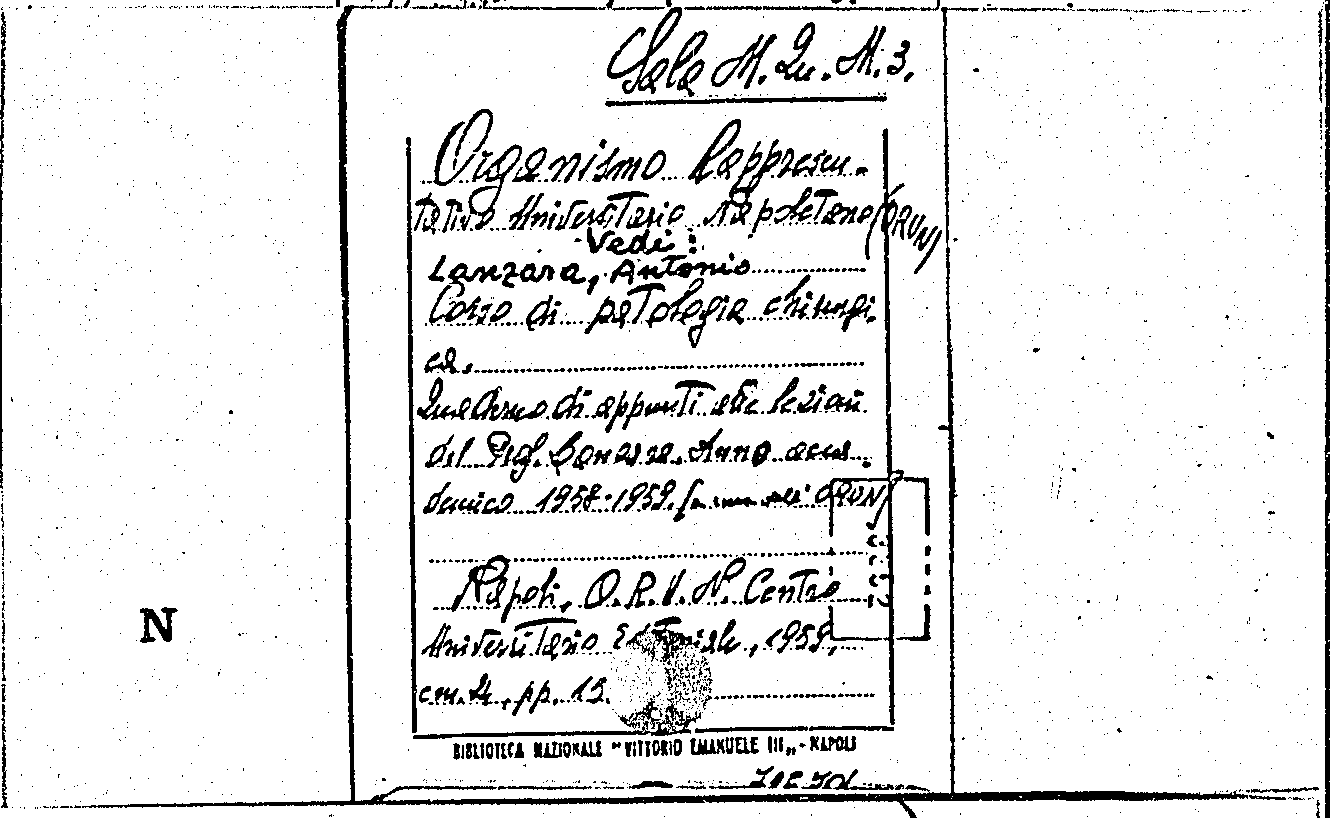 Sala M. Qu. M.3.
Organismo Rappresen-
tativo Universitario Napoletano (ORUN)
Vedi:
Lanzara, Antonio
Corso di patologia chirurgi-
ca.
Quaderno di appunti alle lezioni
del Prof. Anno acca-
demico 1958-1959. all' ORUN
Napoli, O.R.U.N. Centro
Universitario Editoriale, 1959,
cm. 24, pp. 15.
BIBLIOTECA NAZIONALE "VITTORIO EMANUELE III„ - NAPOLI
N